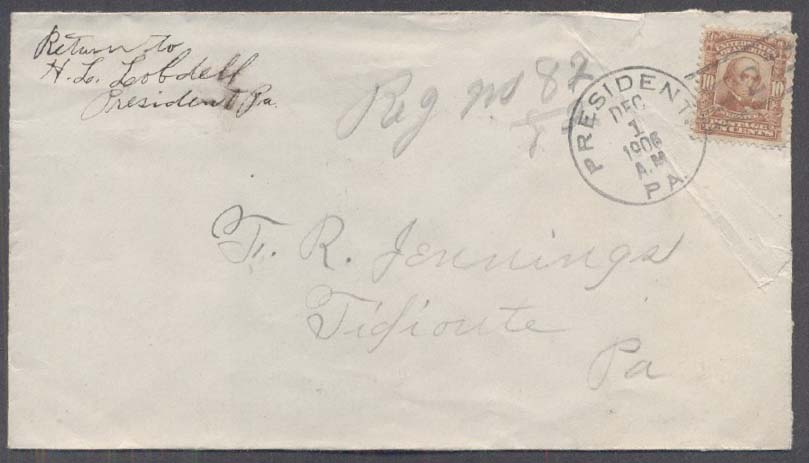 Return to
H. L. Lobdell
President, Pa.
Reg no 87
PRESIDENT.
DEC
1
1906
A.M.
PA.
UNITED STATES
10 10
POSTAGE
TEN CENTS
F. R. Jennings
Tidioute
Pa